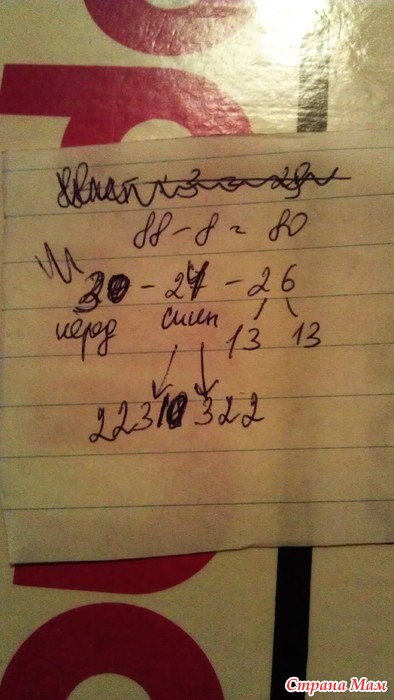 88 - 8 = 80
30 - 24 - 26
перед спин 13 13
223 10 322
Страна Мам